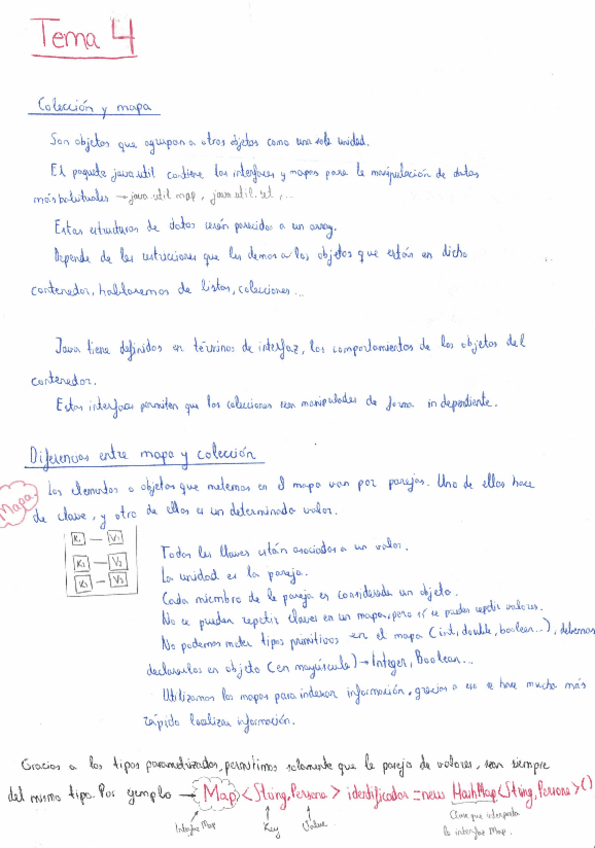 Tema 4
Colección y mapa
Son objetos que agrupan a otros objetos como una sola unidad.
El paquete java.util contiene las interfaces y mapas para la manipulación de datos
más habituales → java.util map, java.util.set, ...
Estas estructuras de datos serán parecidos a un array.
Depende de las restricciones que les demos a los objetos que están en dicho
contenedor, hablaremos de listas, colecciones...
Java tiene definidos en términos de interfaz, los comportamientos de los objetos del
contenedor.
Estas interfaces permiten que las colecciones sean manipuladas de forma independiente.
Diferencias entre mapa y colección
Mapa
Los elementos o objetos que metemos en el mapa van por parejas. Uno de ellos hace
de clave, y otro de ellos es un determinado valor.
K1 — V1
K2 — V2
K3 — V3
Todas las llaves están asociadas a un valor.
La unidad es la pareja.
Cada miembro de la pareja es considerada un objeto.
No se pueden repetir claves en un mapa, pero sí se pueden repetir valores.
No podemos meter tipos primitivos en el mapa (int, double, boolean...), debemos
declararlos en objeto (en mayúscula) → Integer, Boolean...
Utilizamos los mapas para indexar información, gracias a eso se hace mucho más
rápido localizar información.
Gracias a los tipos parametrizados, permitimos solamente que la pareja de valores, sean siempre
del mismo tipo. Por ejemplo → Map<String, Persona> identificador = new HashMap<String, Persona>()
Interfaz Map
Key
Value
Clase que interpreta
la interfaz Map.